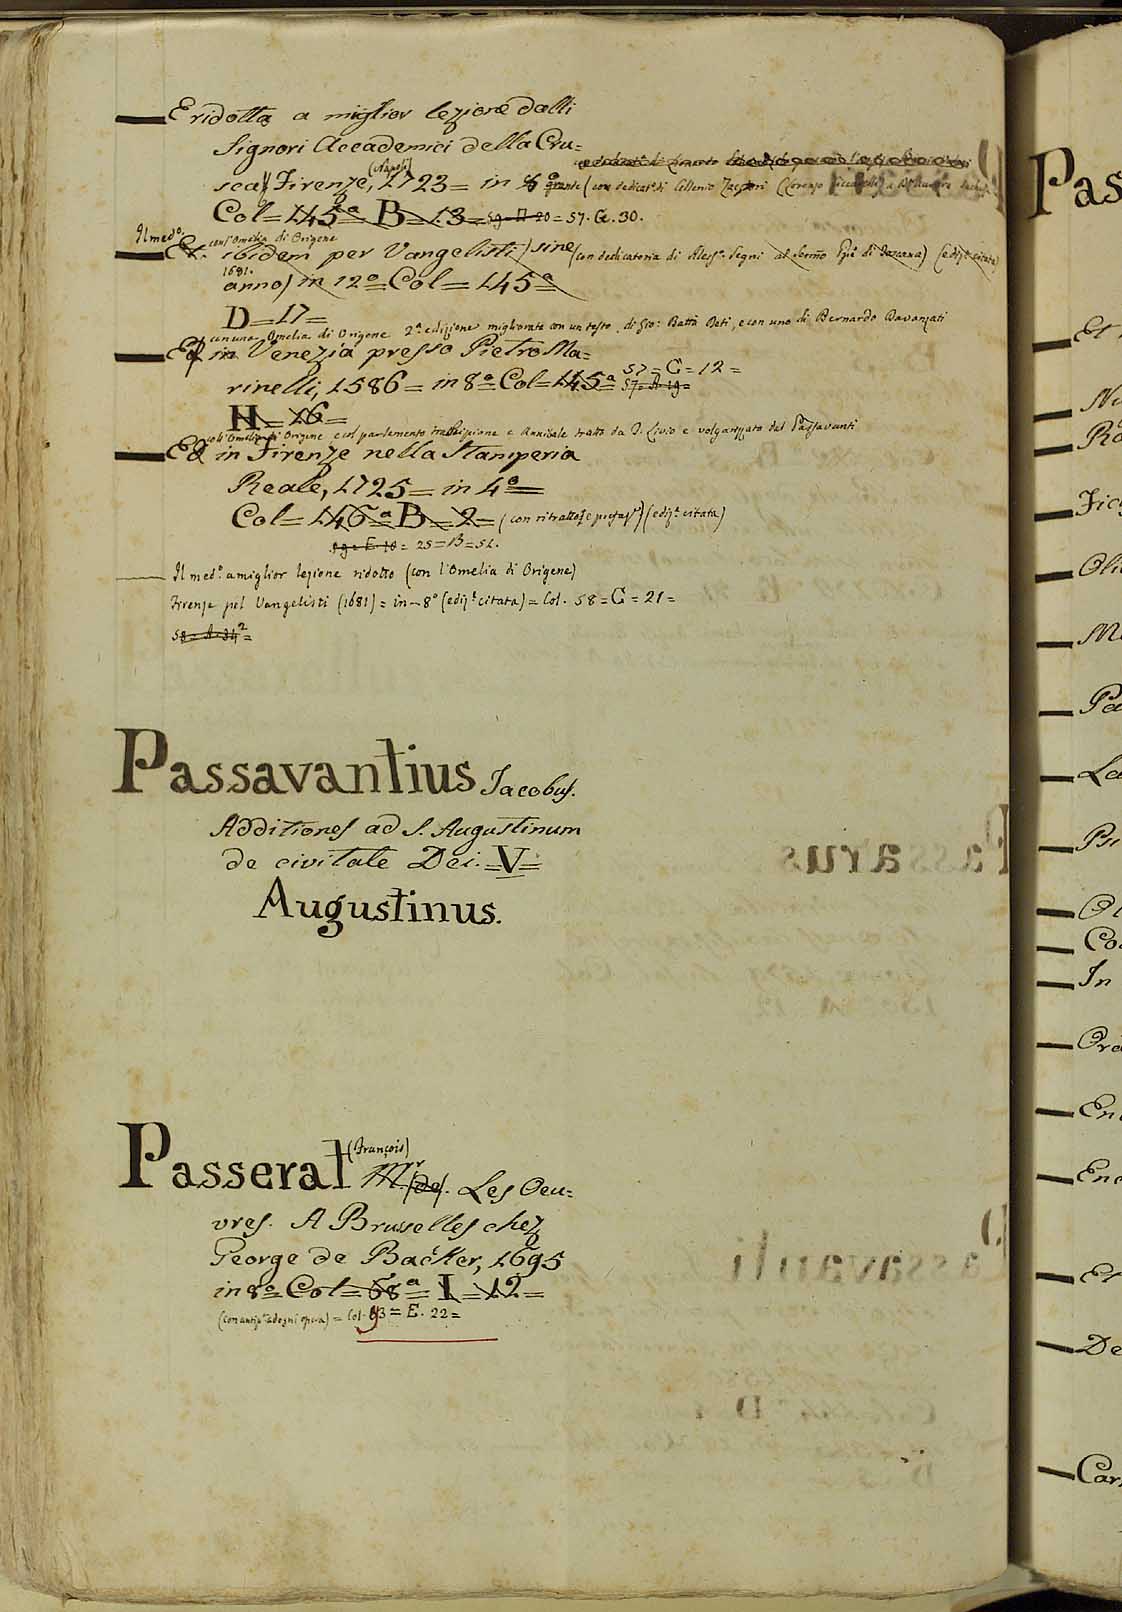 E ridotta a miglior lezione dalli
Signori Accademici della Cru=
(Napoli)
sca Firenze, 1723 = in 8º grande (con dedicat. di Cellenio Zacclori (Lorenzo Ciccarelli) a
Col = 145ª B = 13 = 59 = D 20 = 57. G. 30.
Il medº. con l'Omelia di Origene
Et. ibidem per Vangelisti / sine (con dedicatoria di Alessº. Segni al Sermo Ppe di Toscana) (ediz. citata)
1681.
anno) in 12º = Col = 145ª
D = 17 =
con una Omelia di Origene 2ª edizione migliorata con un testo di Gio: Batta Deti, e con uno di Bernardo Davanzati
Ed in Venezia presso Pietro Ma=
57 = G = 12 =
rinelli, 1586 = in 8º Col = 145ª 57 = A 19 =
H = 16 =
coll'Omelia di Origene e col parlamento tra Scipione e Annibale tratto da T. Livio e volgarizzato dal Passavanti
Ed in Firenze nella Stamperia
Reale, 1725 = in 4º =
Col = 146ª B = 2 = (con ritratto, e prefaz.) (ediz. citata)
59 = E. 10 = 25 = B = 52.
Il medº. a miglior lezione ridotto (con l'Omelia di Origene)
Firenze pel Vangelisti (1681) = in = 8º (ediz. citata) = Col. 58 = G = 21 =
58 = A = 34² =
Passavantius Jacobus.
Additiones ad S. Augustinum
de civitate Dei. = V =
Augustinus.
(François)
Passerat Mr (de). Les Oeu=
vres. A Bruxelles chez
George de Backer, 1695
in 8º Col = 68ª = I = 12 =
(con antip. ad ogni opera) = Col. 93 = E. 22 =
Pas
Et
Ro
Fio
Oli
Pa
La
Co
In
Ora
En
En
Et
De
Car